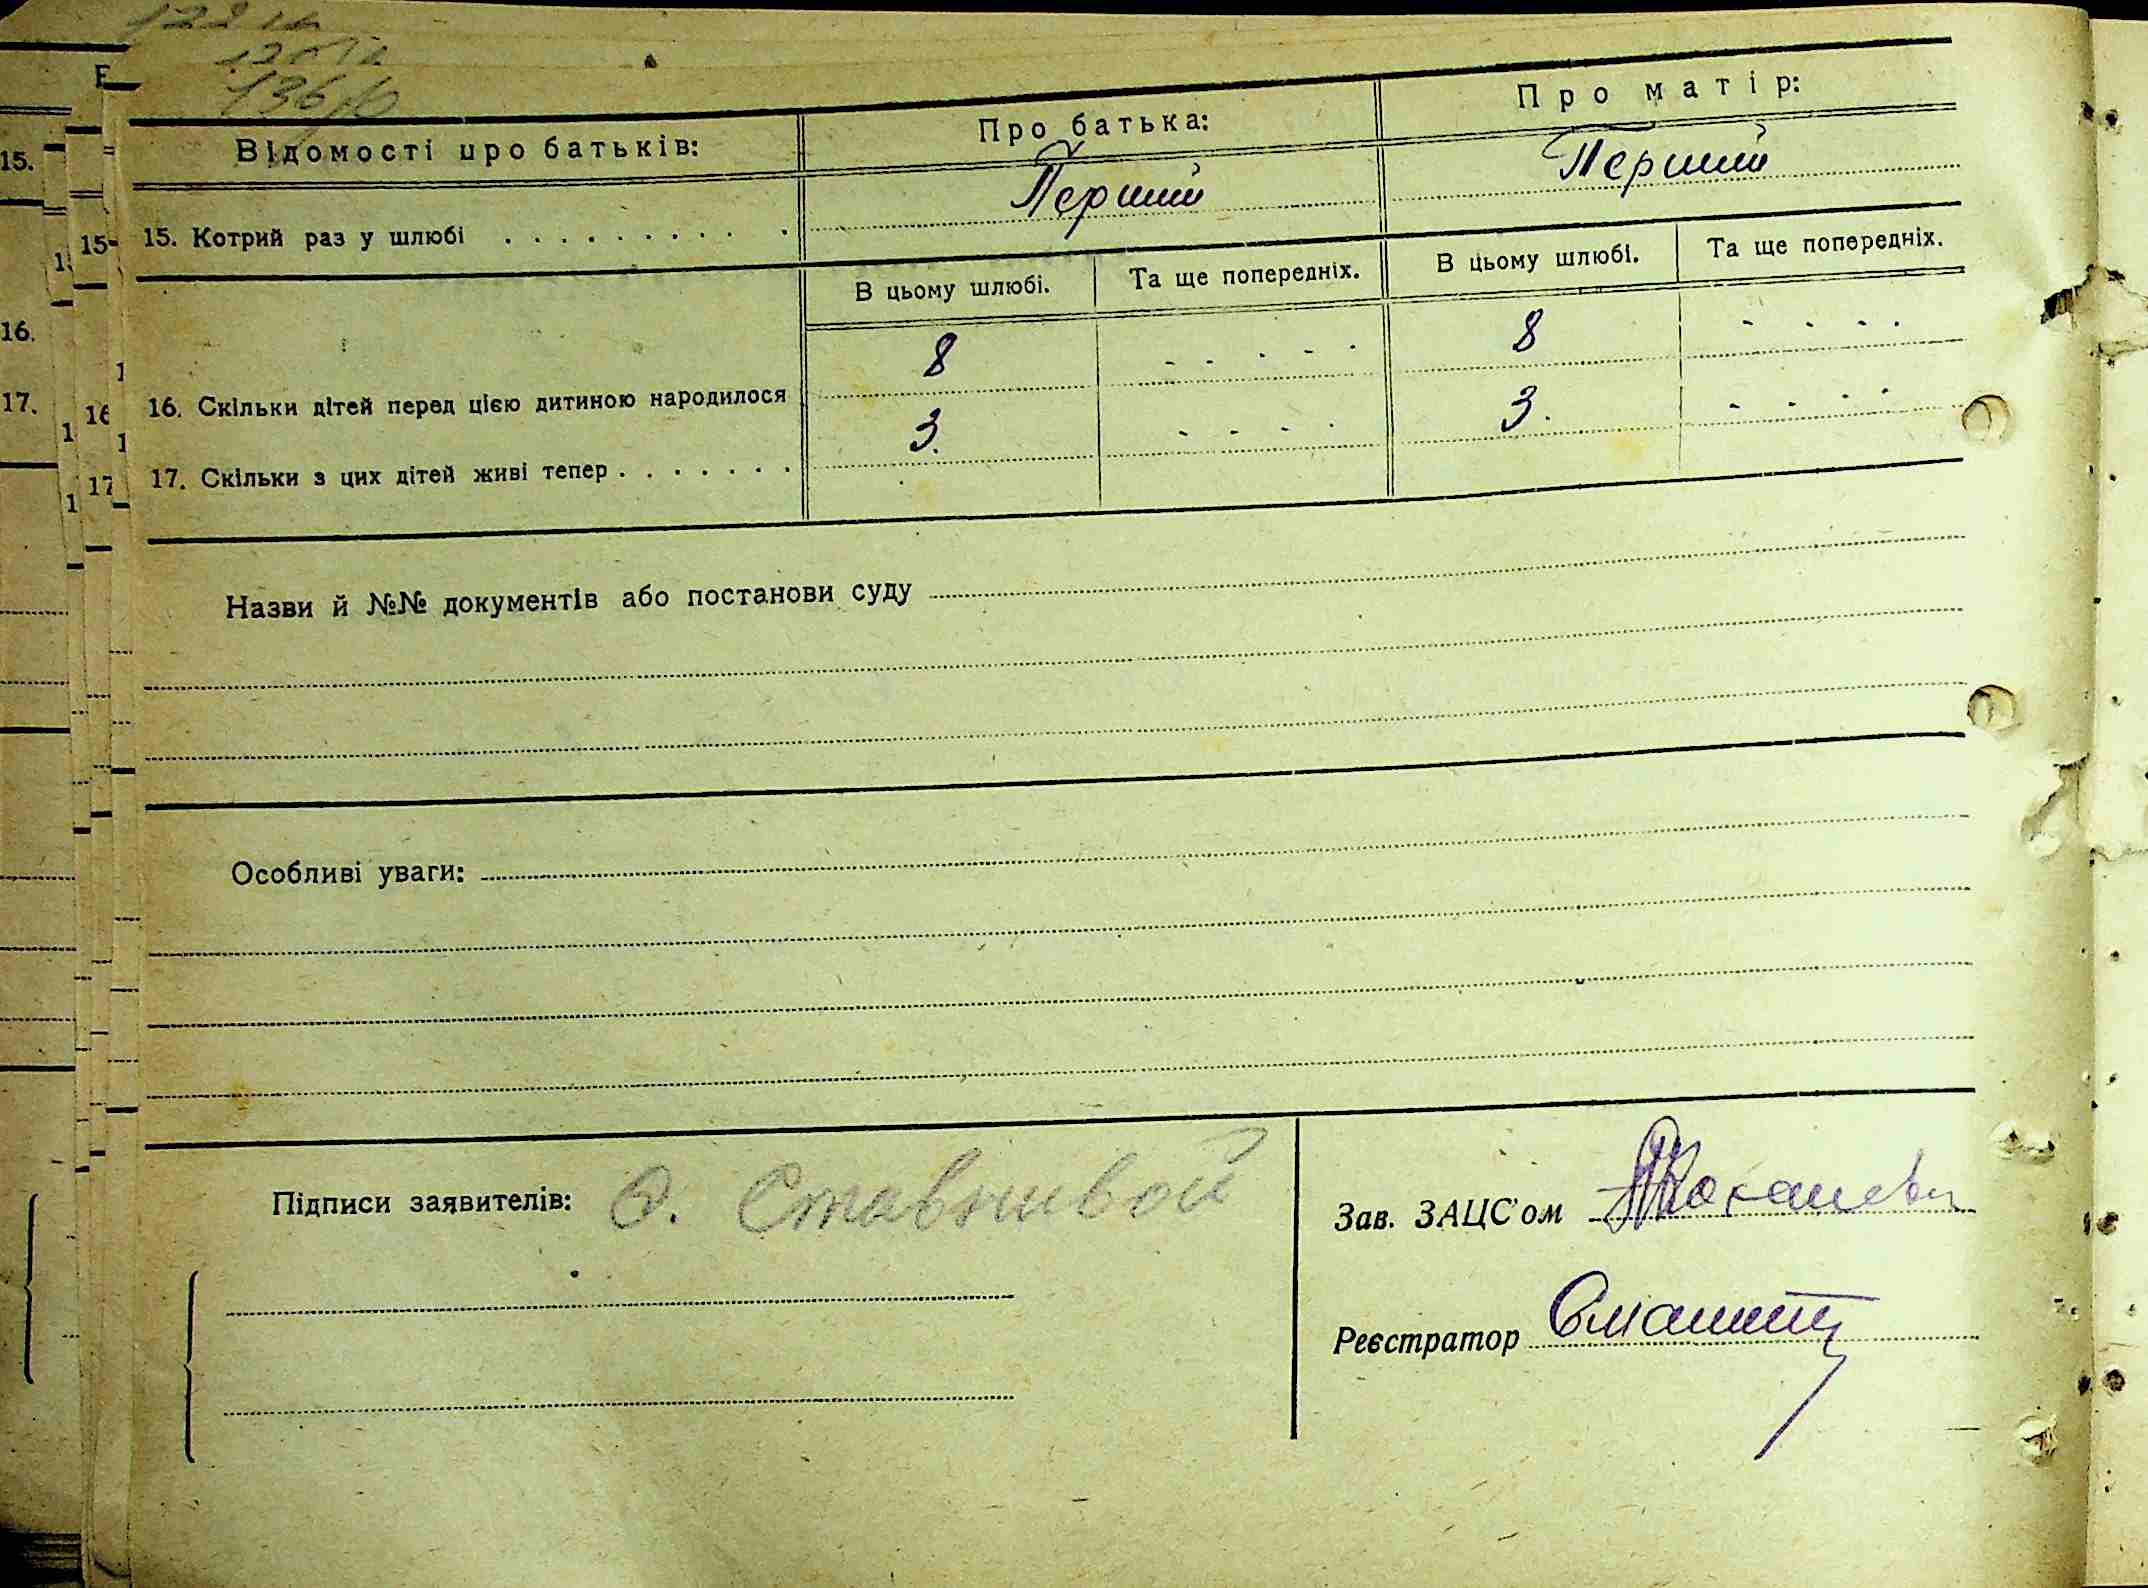 136
Відомості про батьків: Про батька: Про матір:
15. Котрий раз у шлюбі Перший Перший
В цьому шлюбі. Та ще попередніх. В цьому шлюбі. Та ще попередніх.
16. Скільки дітей перед цією дитиною народилося 8 - - - - 8 - - - -
17. Скільки з цих дітей живі тепер 3. - - - - 3. - - - -
Назви й №№ документів або постанови суду
Особливі уваги:
Підписи заявителів: О.
Зав. ЗАЦС'ом
Реєстратор
15.
15
16.
16
17.
17